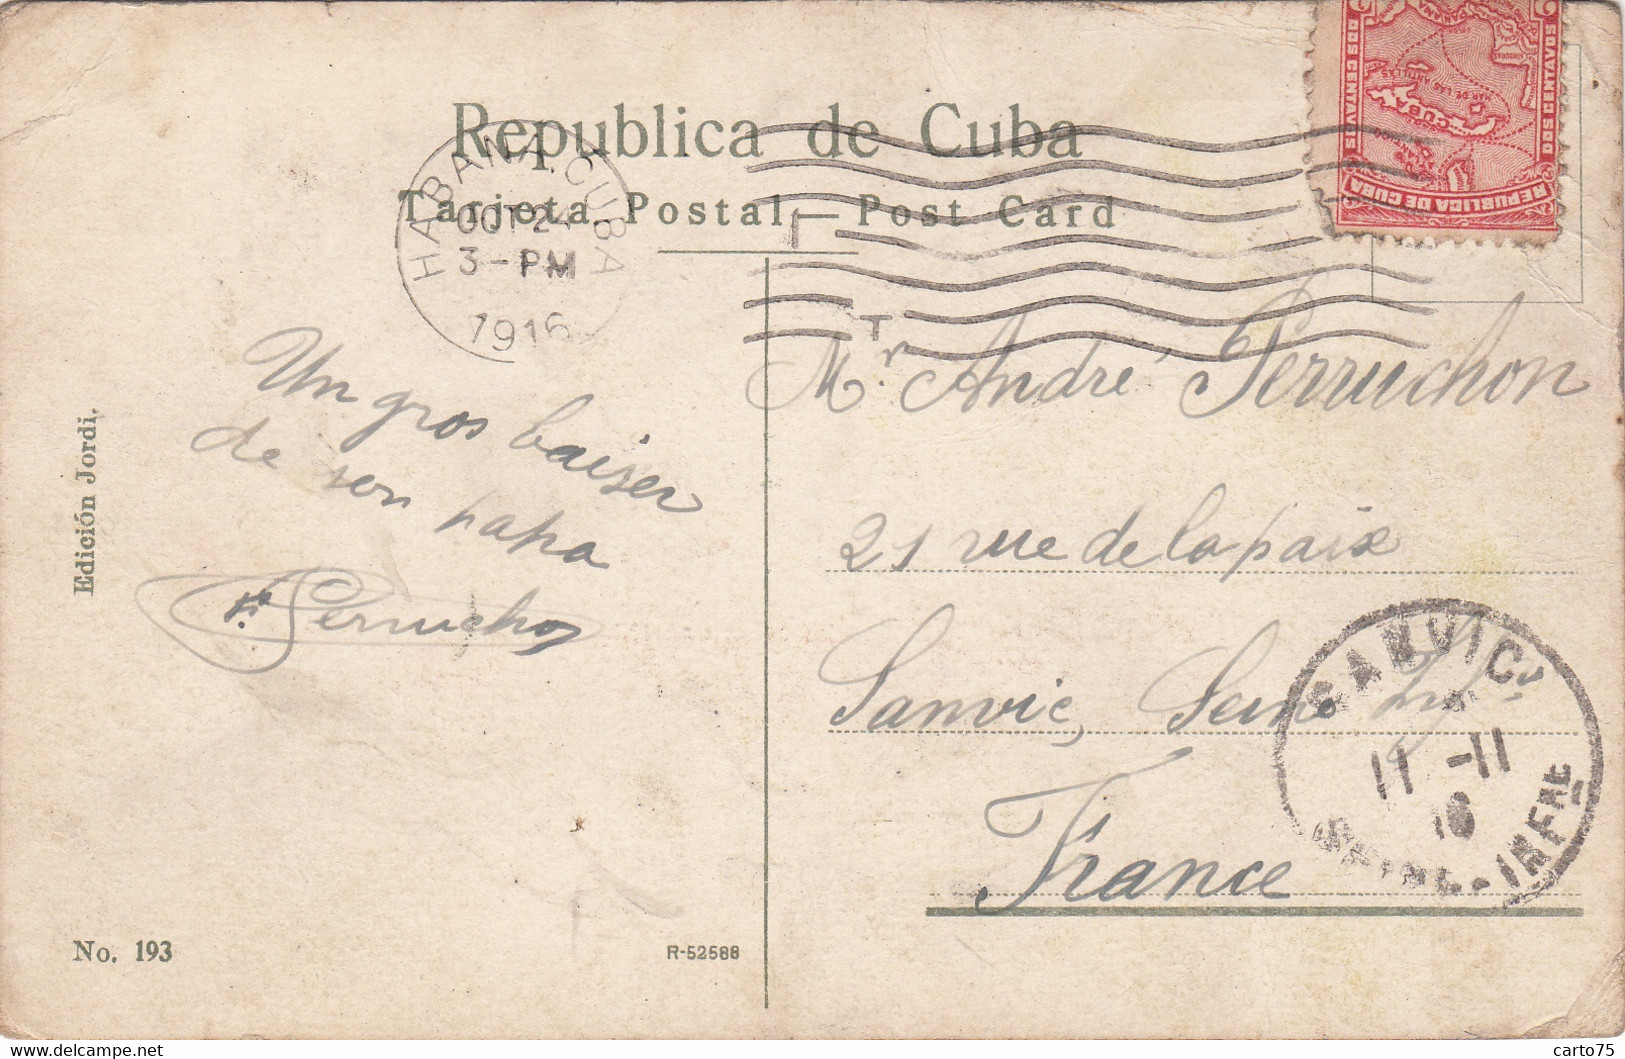 Republica de Cuba
Tarjeta Postal — Post Card
HABANA, CUBA
OCT 2
3-PM
1916
REPUBLICA DE CUBA
DOS CENTAVOS
CUBA
MAR DE LAS ANTILLAS
T
Un gros baiser
de son papa
Perruchon
Mr. André Perruchon
21 rue de la paix
Sanvic, Seine Infre
France
SANVIC
11 -11
16
SEINE-INFRE
Edición Jordi.
No. 193
R-52588
carto75